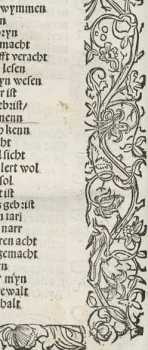 wymmen
n
bryn
macht
fft veracht
lesen
yn wesen
r ist
gebrist/
nenn
h kenn
ht
l sicht
lert wol
sol
t ist
s gebrist
n tarj
narr
ren acht
gemacht
n
r myn
gewalt
halt